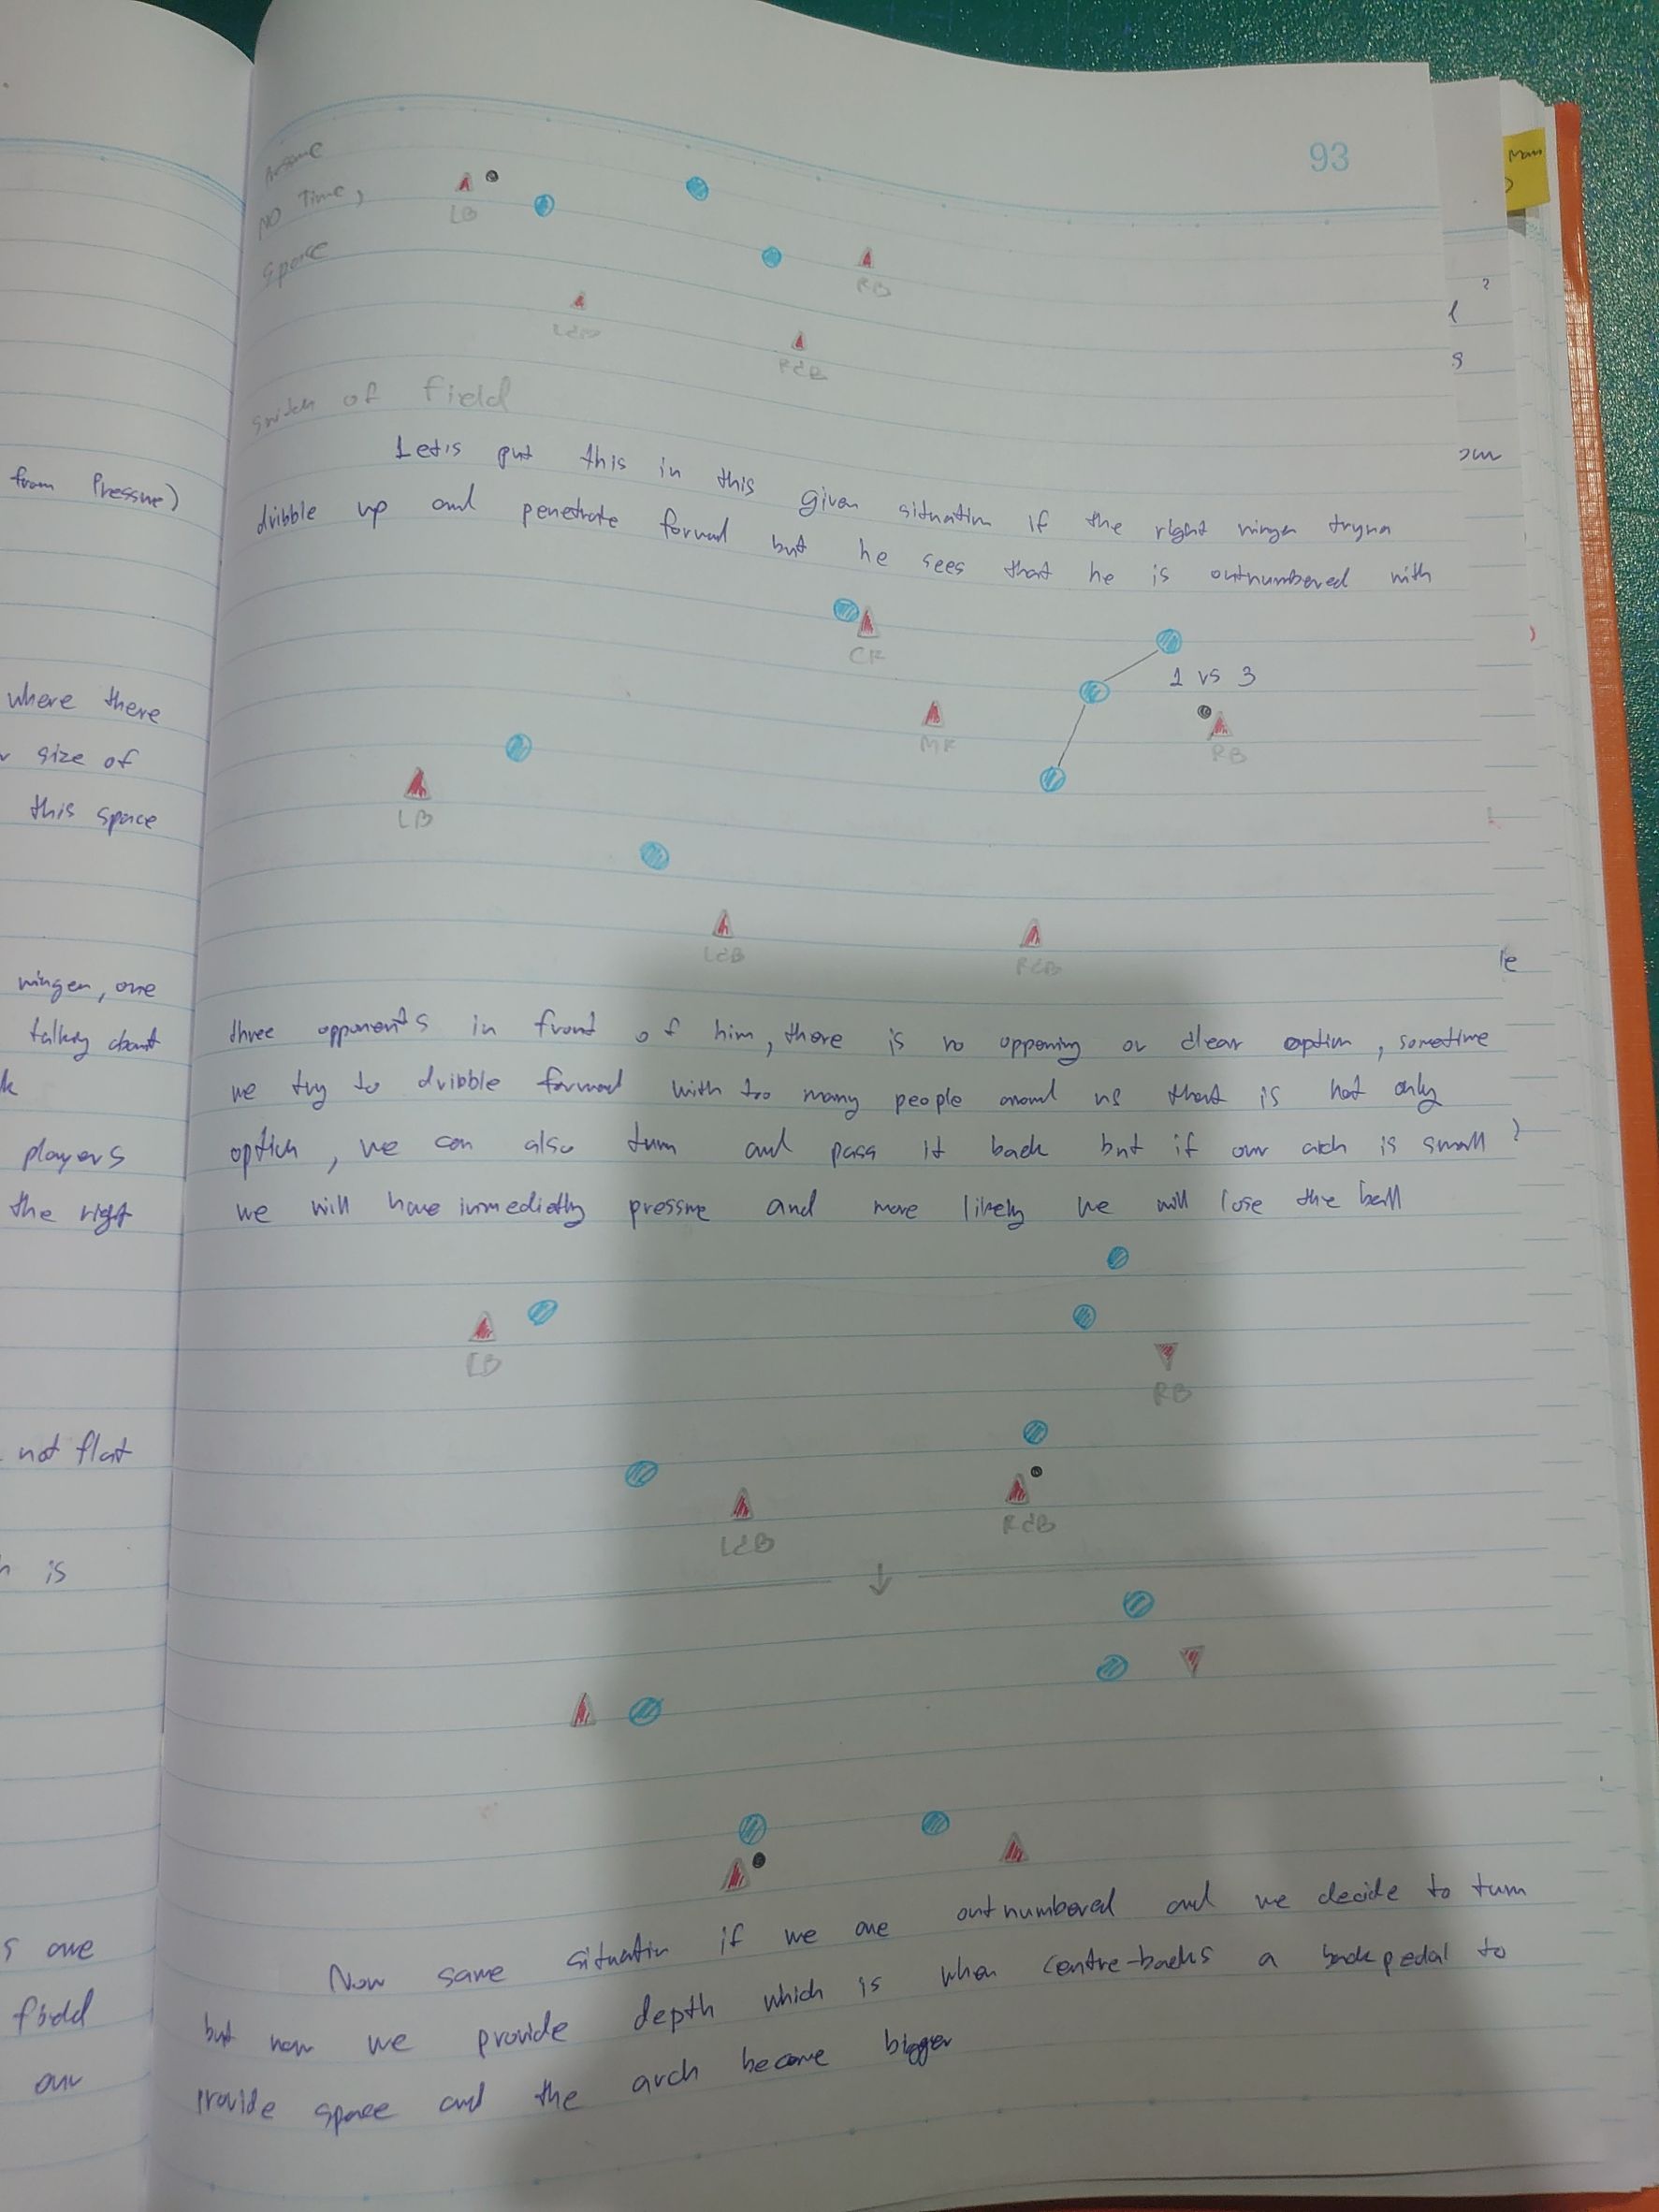 from Pressure)
where there
size of
this space
winger, one
talking about
players
the right
not flat
is
are
field
our
93
NO Time,
Space
LB
RB
LCB
RCB
Switch of field
Let's put this in this given situation if the right winger tryna
dribble up and penetrate forward but he sees that he is outnumbered with
CF
1 vs 3
RB
LB
LCB
RCB
three opponents in front of him, there is no oppening or clear option, sometime
we try to dribble forward with too many people around us that is not only
option, we can also turn and pass it back but if our arch is small
we will have immedietly pressure and more likely we will lose the ball
LB
RB
LCB
RCB
↓
Now same situation if we are outnumbered and we decide to turn
but now we provide depth which is when centre-backs a backpedal to
provide space and the arch become bigger